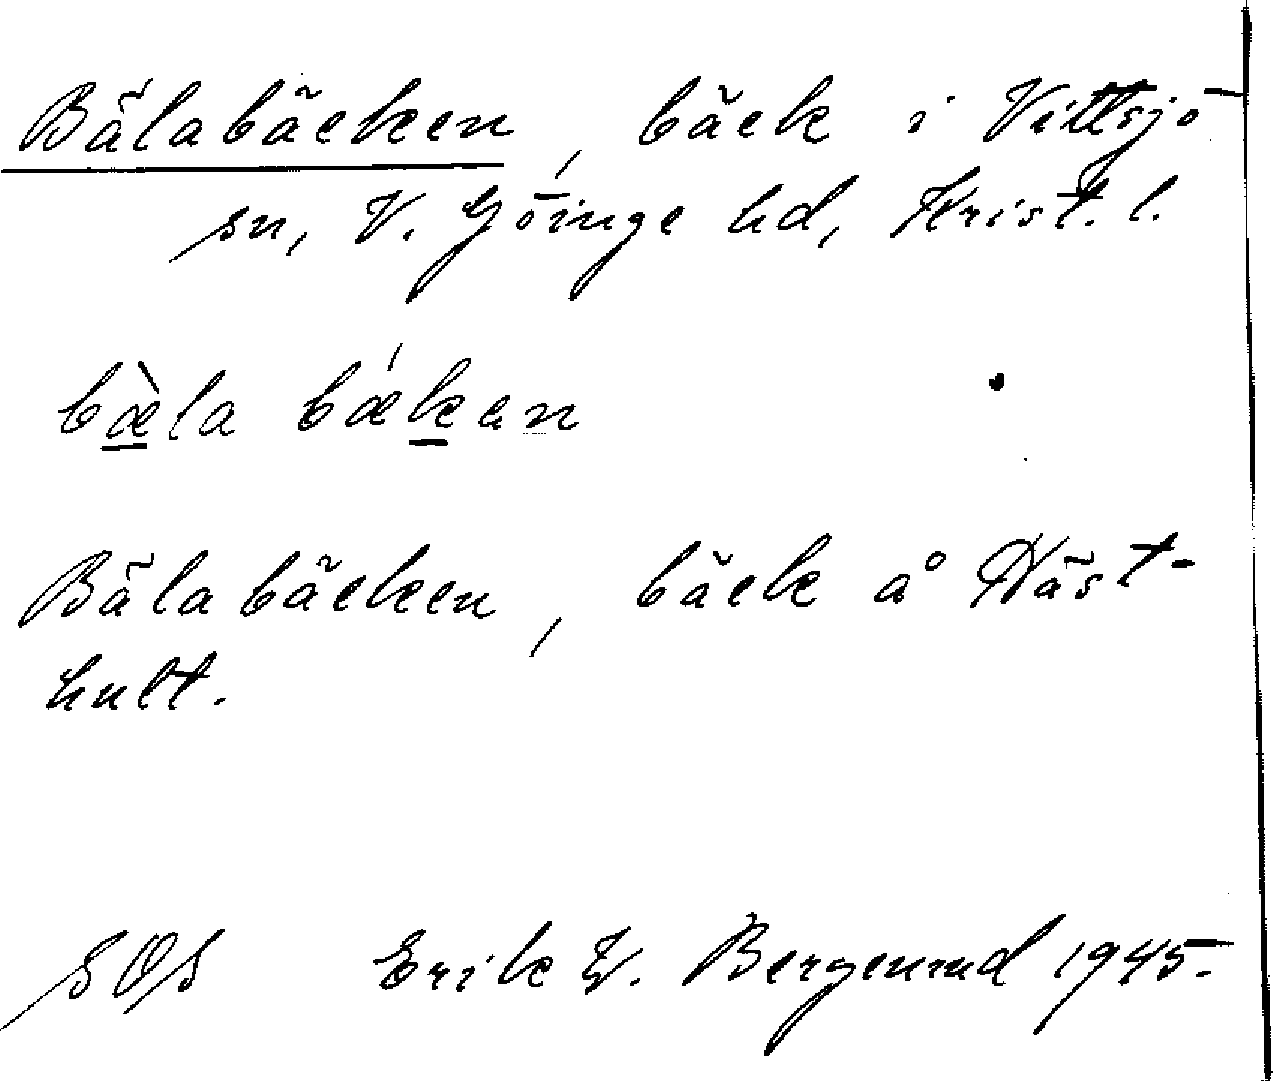 Bälabäcken, bäck i Vittsjö
sn, V. Göinge hd, Krist. l.
bæ̀la bǽkan
Bälabäcken, bäck å Häst-
hult.
SOS Erik W. Bergenrud 1945.